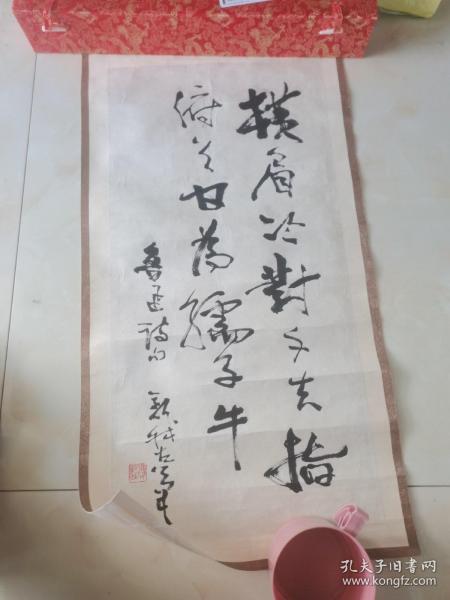 横眉冷對千夫指
俯首甘為孺子牛
魯迅詩句
孔夫子旧书网
www.kongfz.com